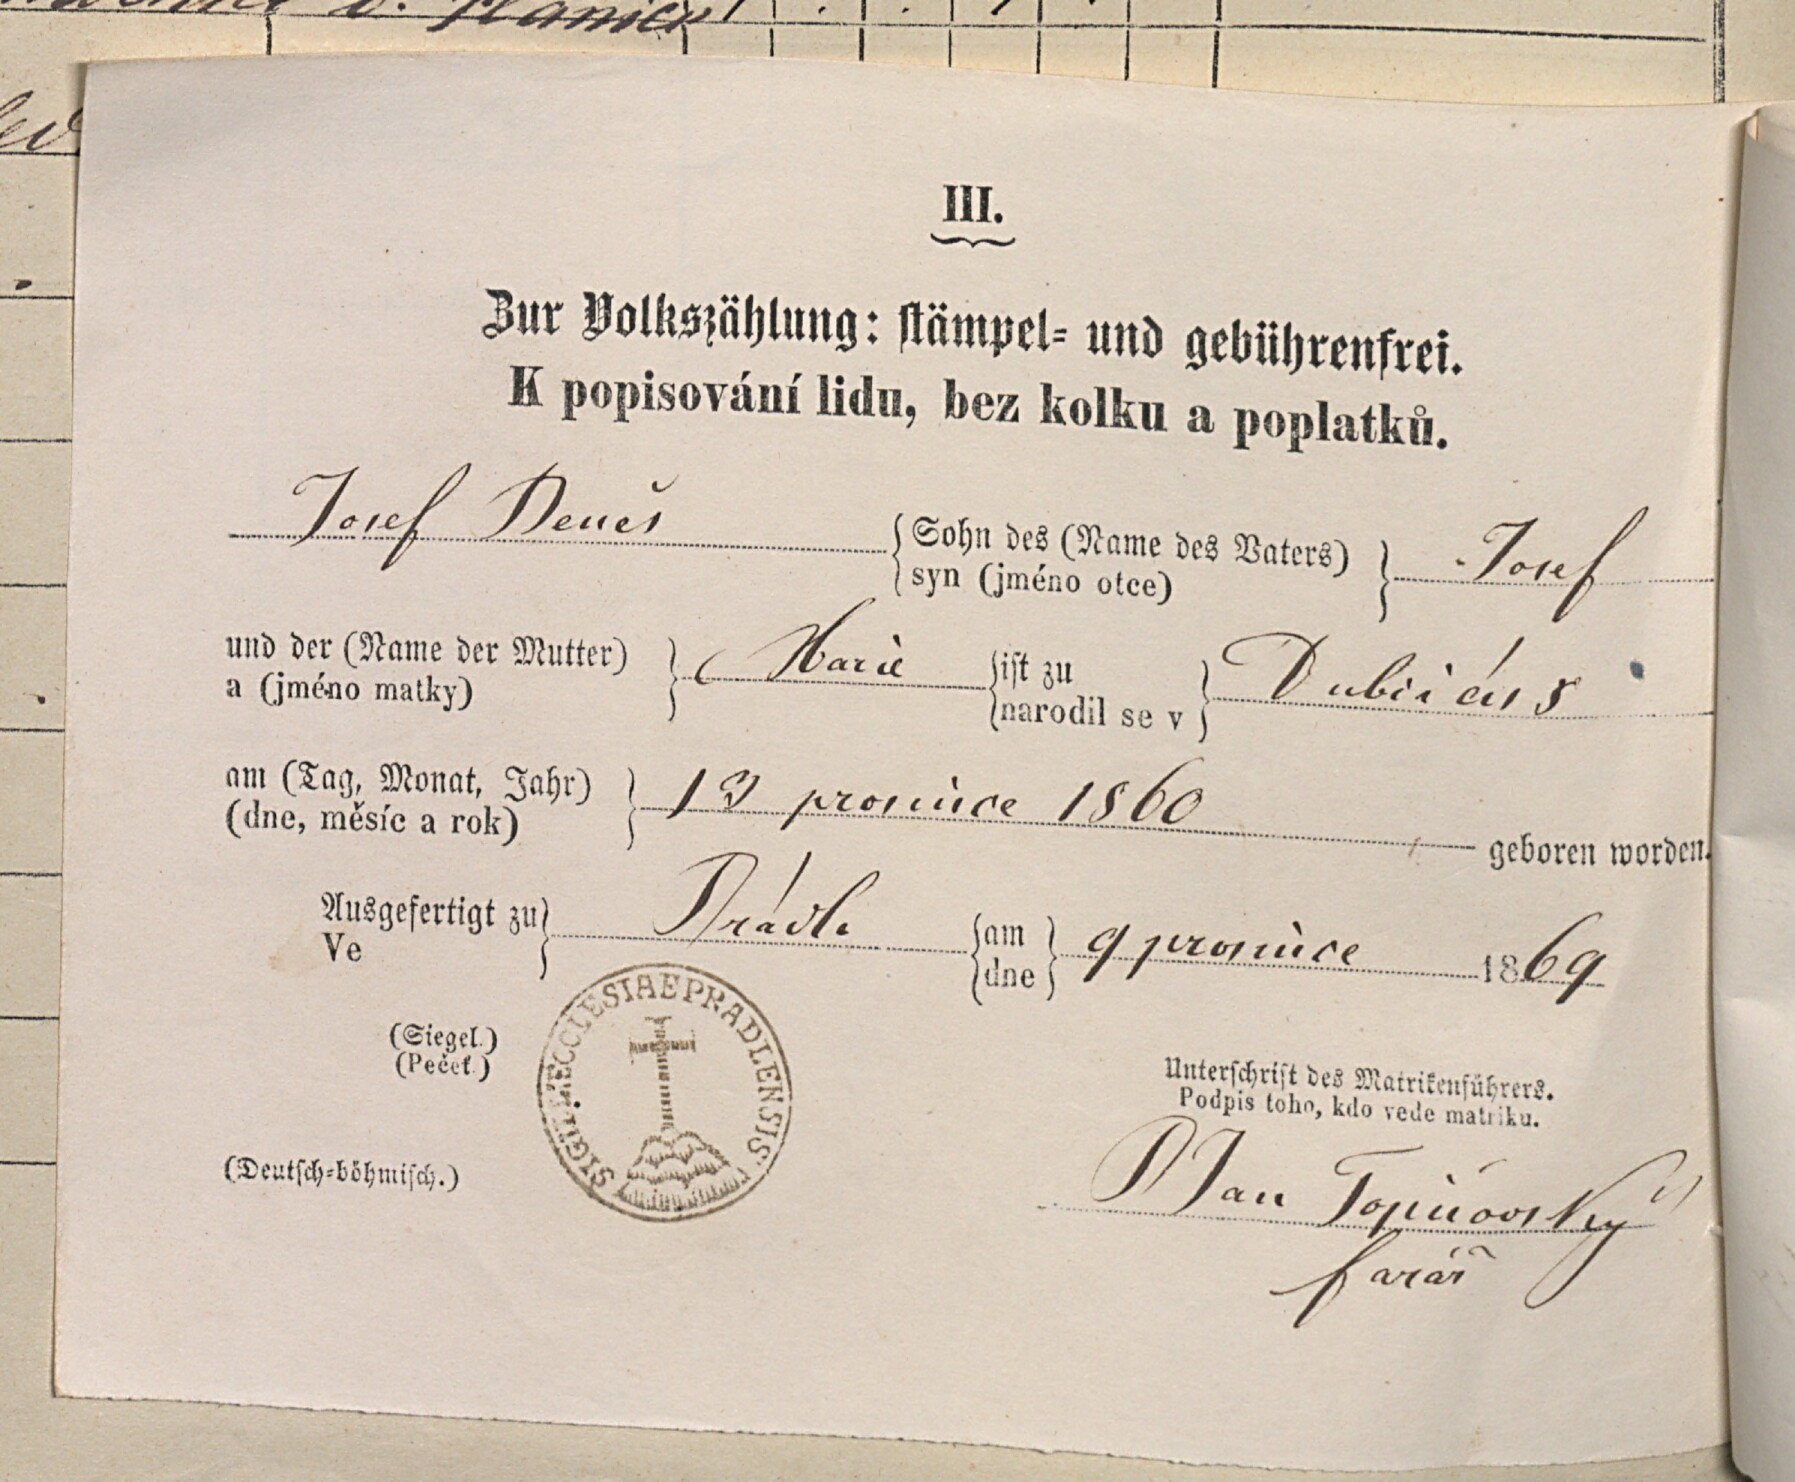 v. Plánick
III.
Zur Volkszählung: stämpel- und gebührenfrei.
K popisování lidu, bez kolku a poplatků.
Josef Beneš { Sohn des (Name des Vaters) } Josef
syn (jméno otce)
und der (Name der Mutter) } Marie { ist zu } Dubičás 8
a (jméno matky) narodil se v
am (Tag, Monat, Jahr) } 13 prosince 1860
(dne, měsíc a rok) geboren worden.
Ausgefertigt zu } Prádli { am } 9 prosince 1869
Ve dne
SIGILL. ECCLESIAE PRADLENSIS
(Siegel.)
(Pečeť.)
Unterschrift des Matrikenführers.
Podpis toho, kdo vede matriku.
(Deutsch-böhmisch.)
P Jan Topičovský
farář